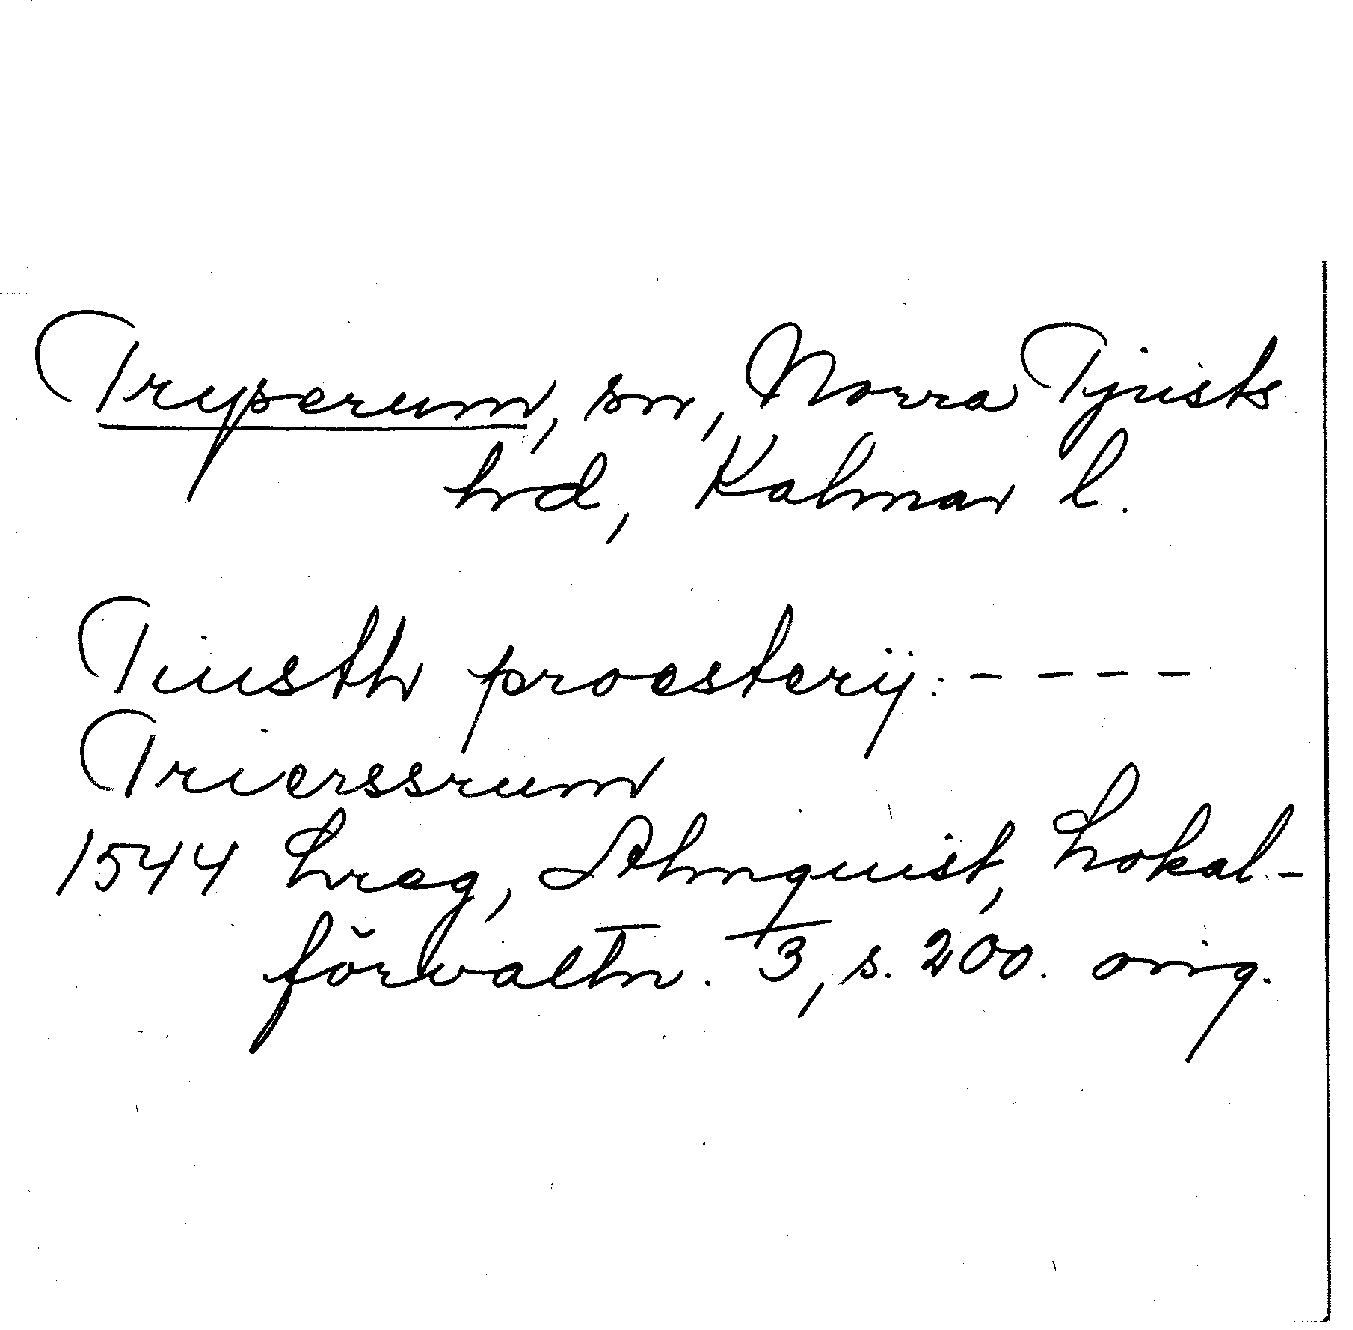 Tryserum, sn, Norra Tjusts
hd, Kalmar l.
Tiusth proesterij: - - - -
Trierssrum
1544 Lreg, Almquist, Lokal-
förvaltn. 3, s. 200. orig.